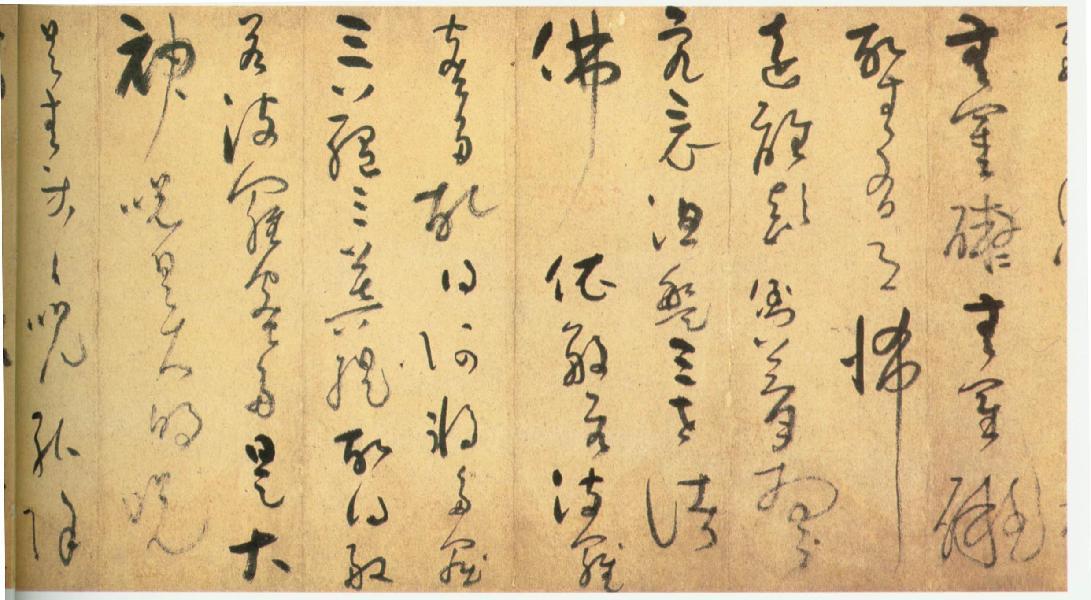 無罣礙無罣礙
故無有恐怖
遠離顛倒夢想
究竟涅槃三世諸
佛 依般若波羅
蜜多故得阿耨多羅
三藐三菩提故知般
若波羅蜜多是大
神咒是大明咒
是無等々咒能除